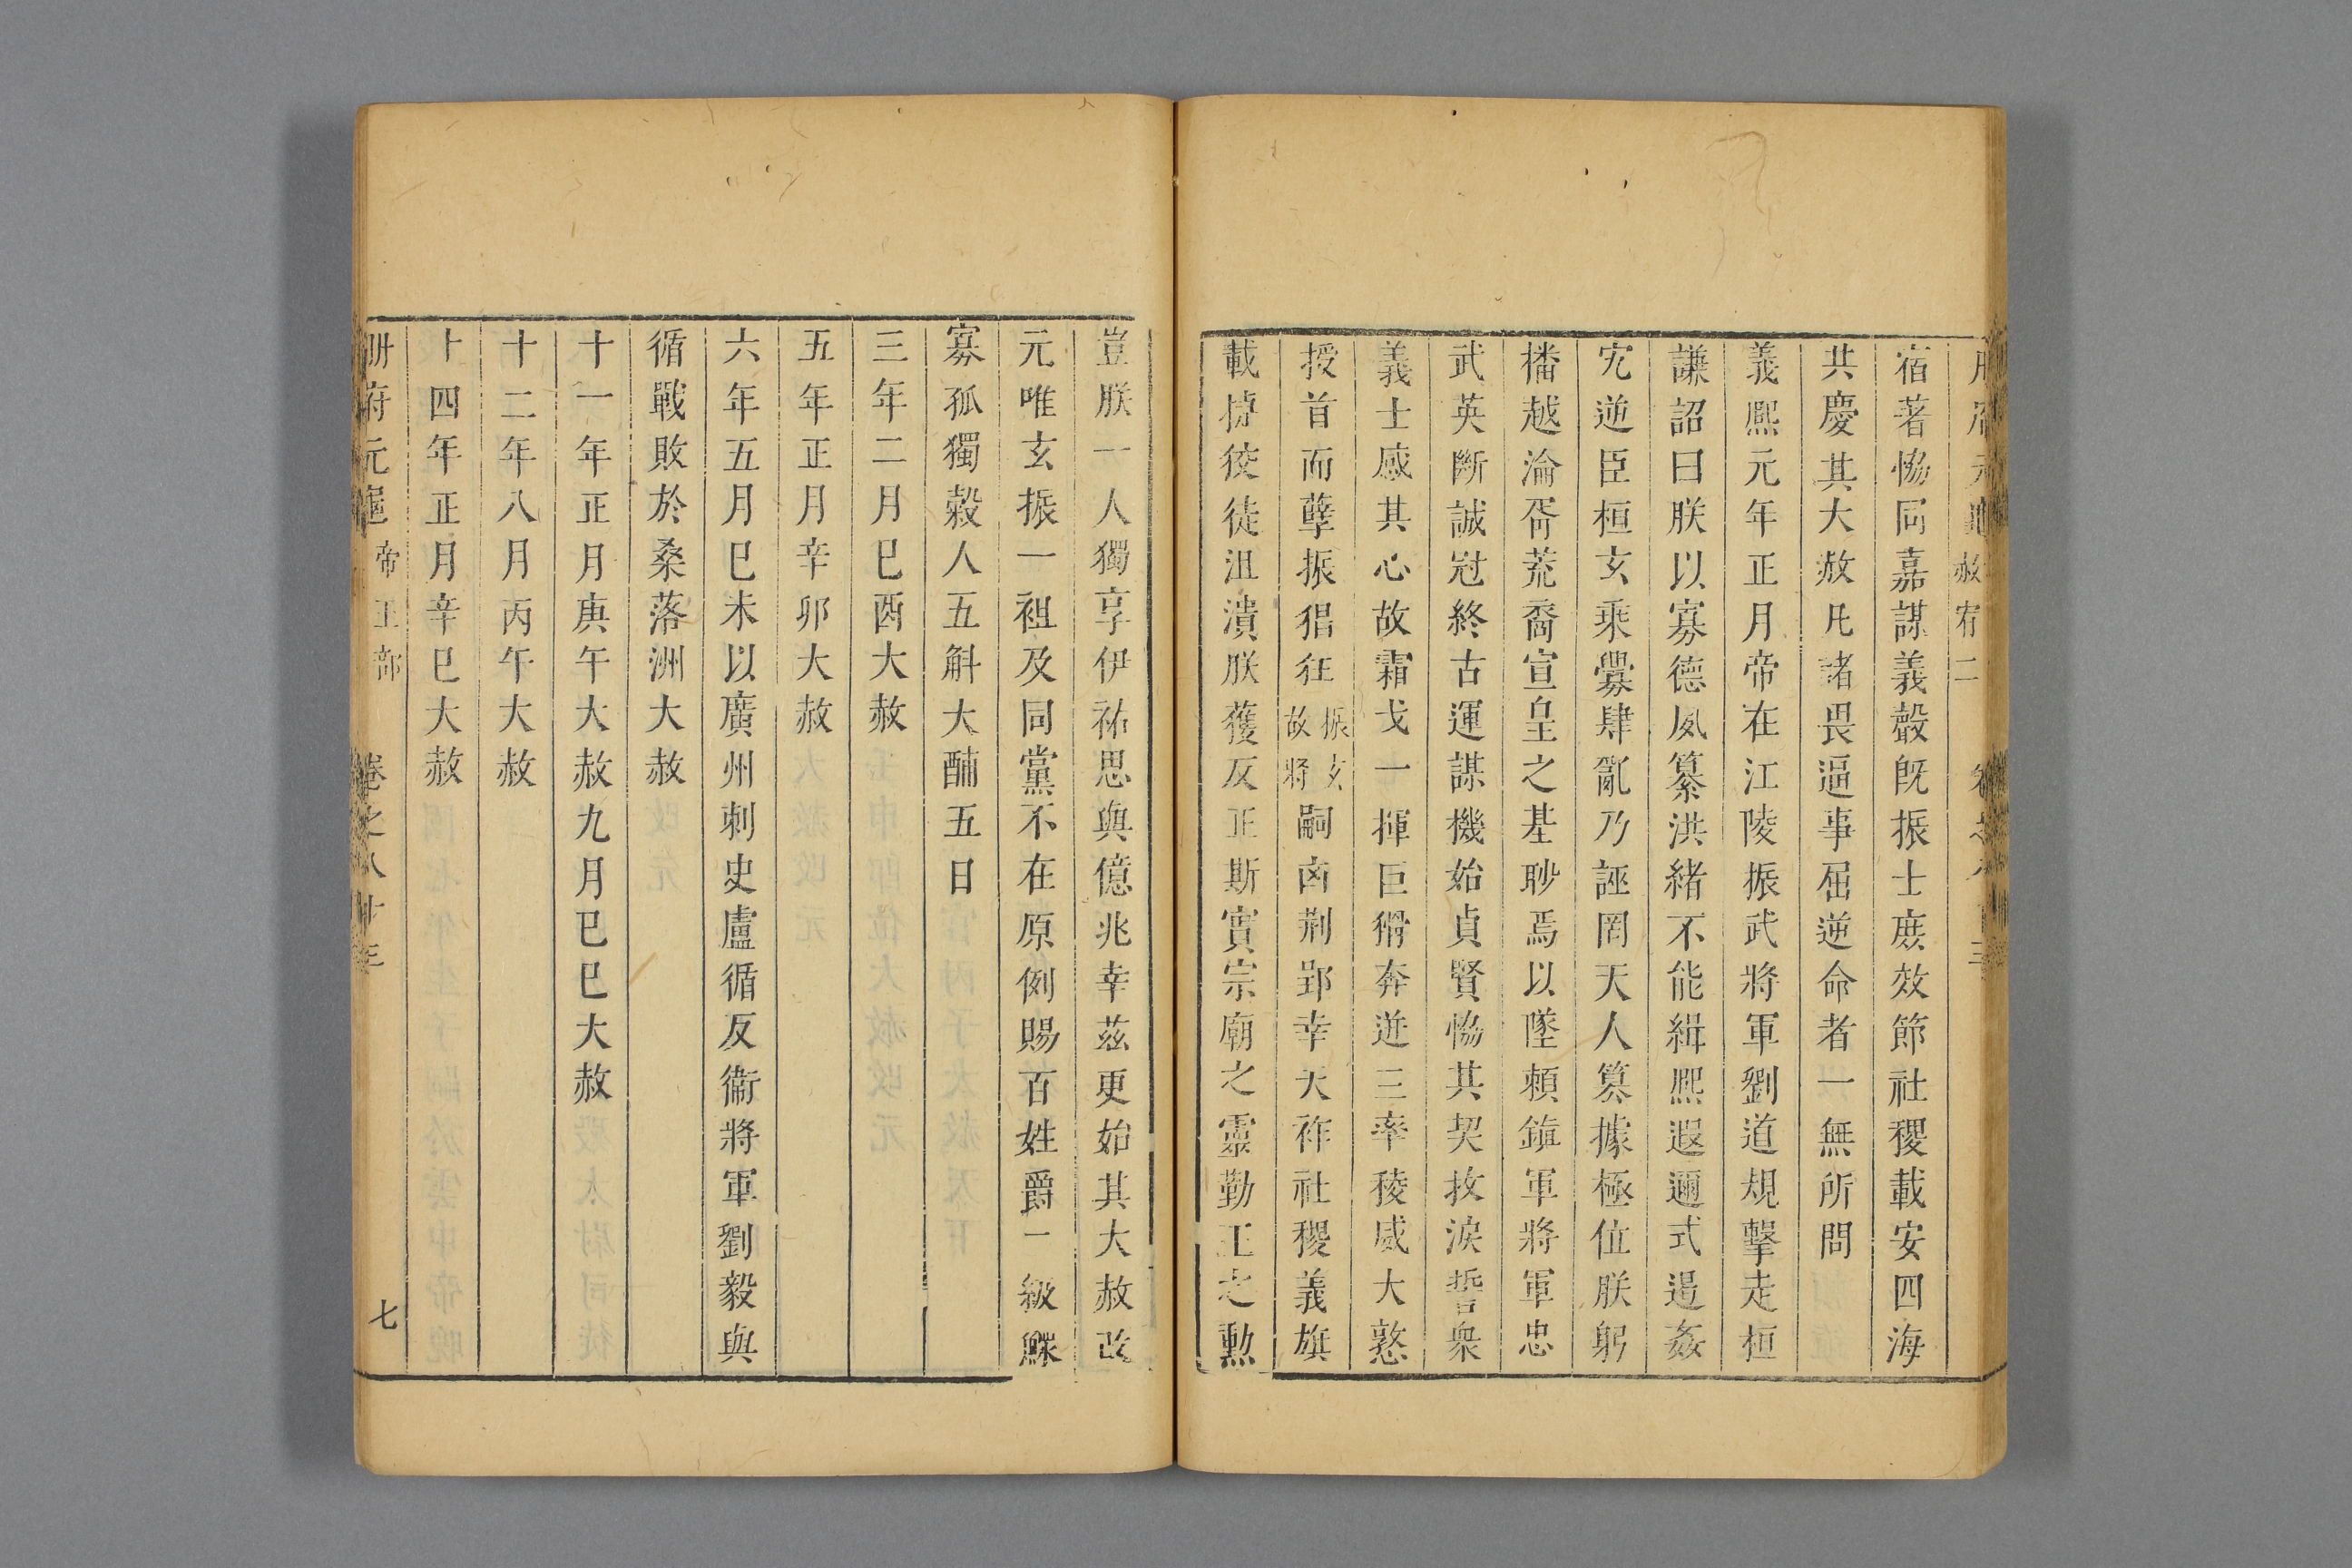 赦宥二
宿著恊同嘉謀義聲旣振士庶效節社稷載安四海
共慶其大赦凡諸畏逼事屈逆命者一無所問
義熙元年正月帝在江陵振武將軍劉道規擊走桓
謙詔曰朕以寡德夙纂洪緒不能緝熙遐邇式遏姦
宄逆臣桓玄乘釁肆亂乃誣罔天人篡據極位朕躬
播越淪胥荒裔宣皇之基眇焉以墜賴鎮軍將軍忠
武英斷誠冠終古運謀機始貞賢恊其契抆淚誓衆
義士感其心故霜戈一揮巨猾奔迸三率稜威大憝
授首而孽振猖狂振玄故將嗣凶荆郢幸天祚社稷義旗
載捷狡徒沮潰朕獲反正斯實宗廟之靈勤王之勳
豈朕一人獨享伊祐思與億兆幸茲更始其大赦改
元唯玄振一祖及同黨不在原例賜百姓爵一級鰥
寡孤獨穀人五斛大酺五日
三年二月巳酉大赦
五年正月辛卯大赦
六年五月巳未以廣州刺史盧循反衞將軍劉毅與
循戰敗於桑落洲大赦
十一年正月庚午大赦九月巳巳大赦
十二年八月丙午大赦
十四年正月辛巳大赦
冊府元龜 帝王部 卷之八十三 七